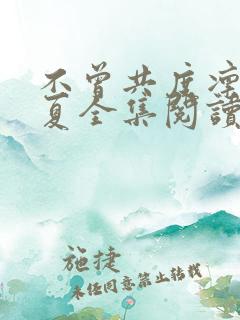 不曾共度凛
夏全集閱讀
施捷
未经同意禁止转载